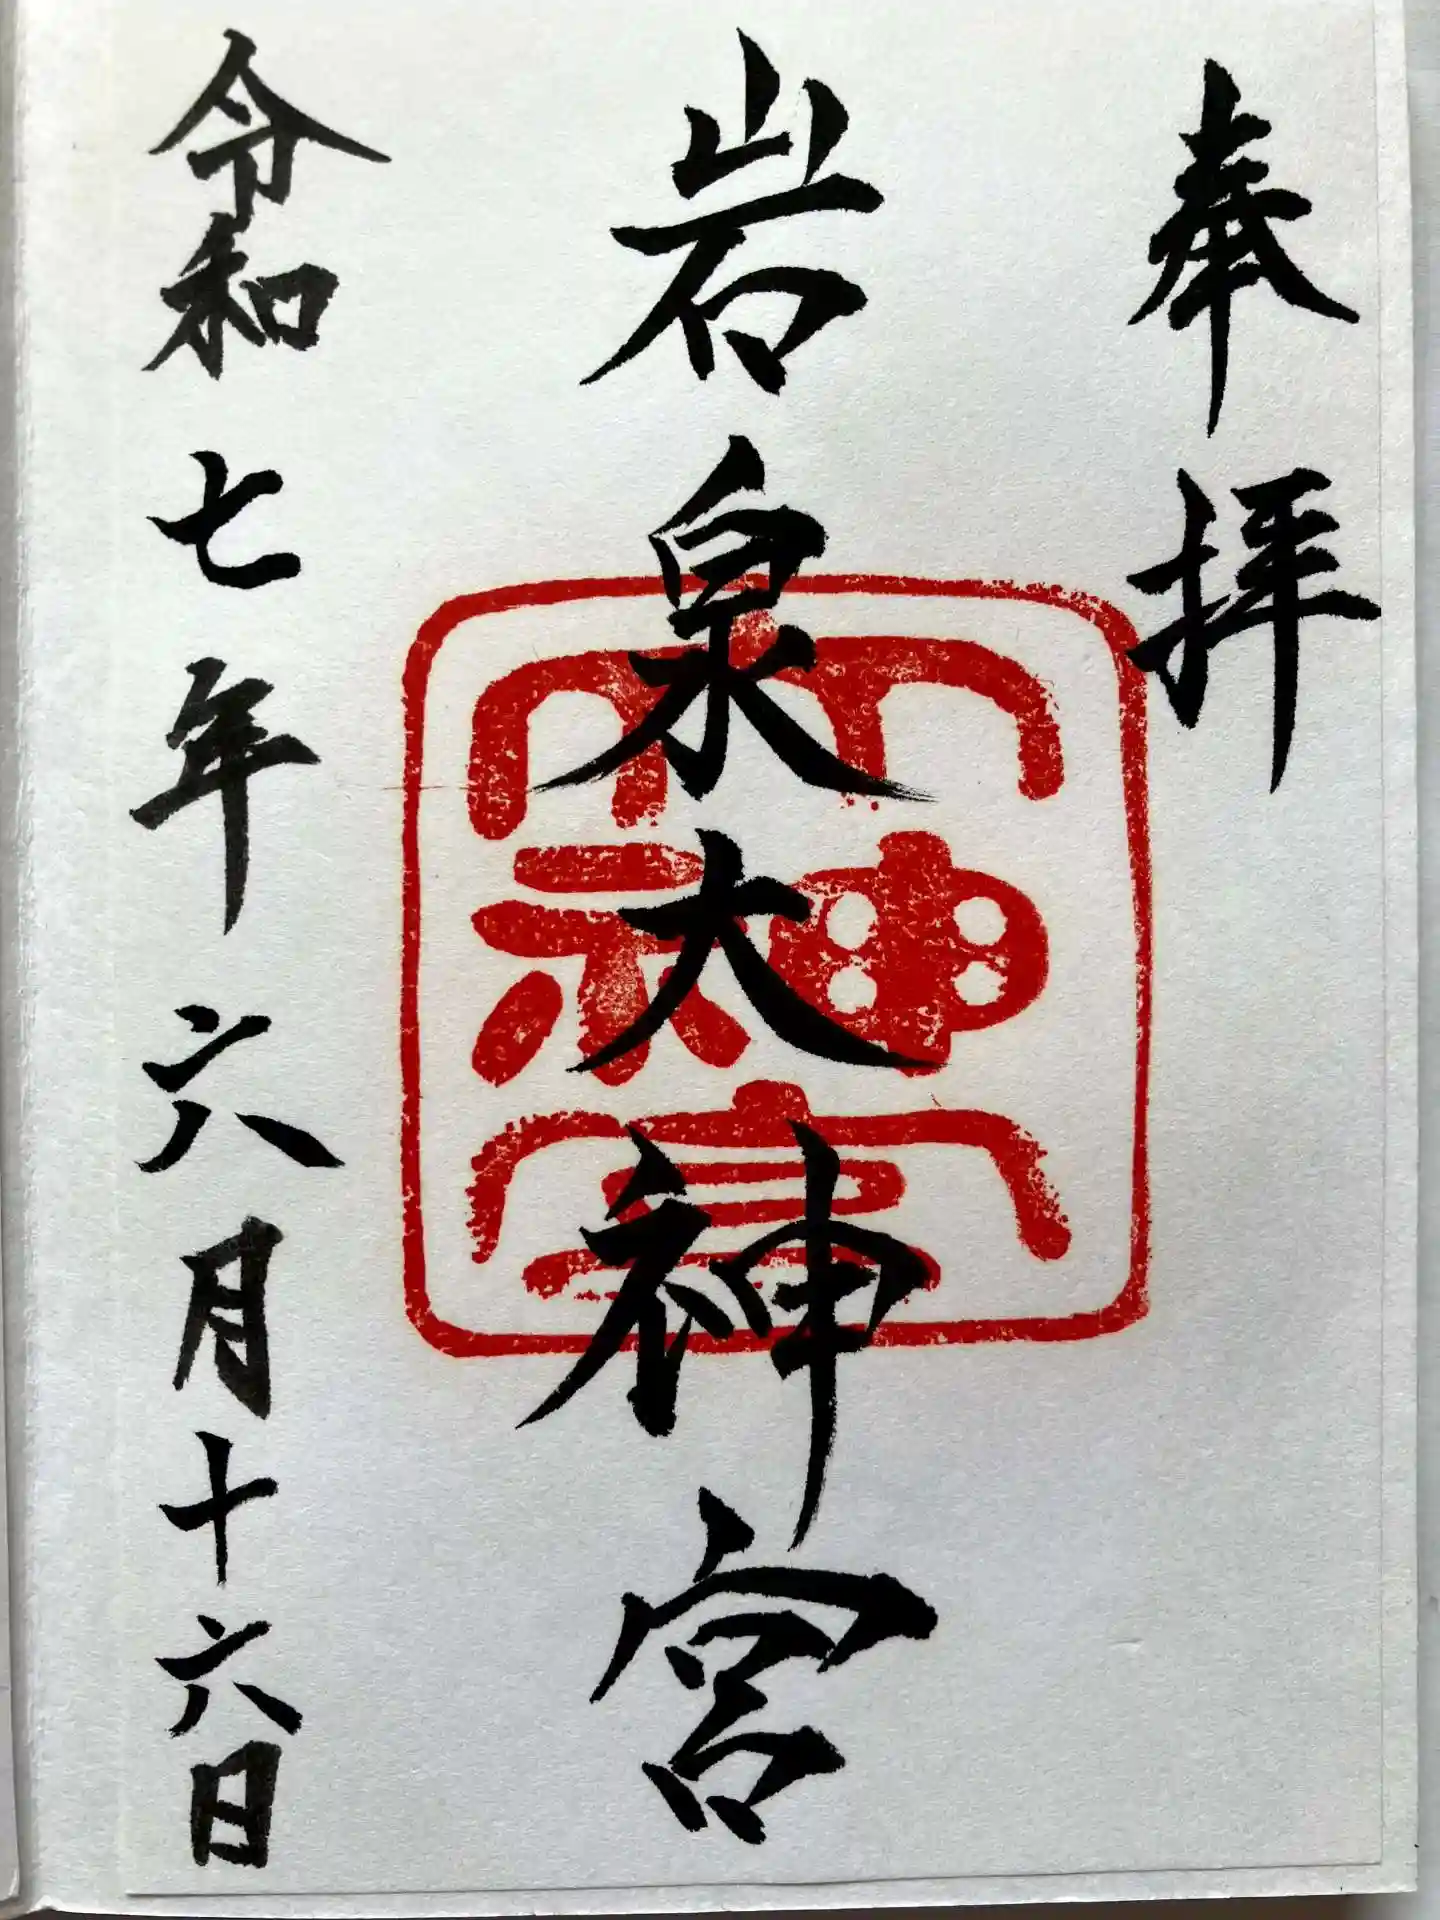 奉拝
岩泉大神宮
令和七年六月十六日